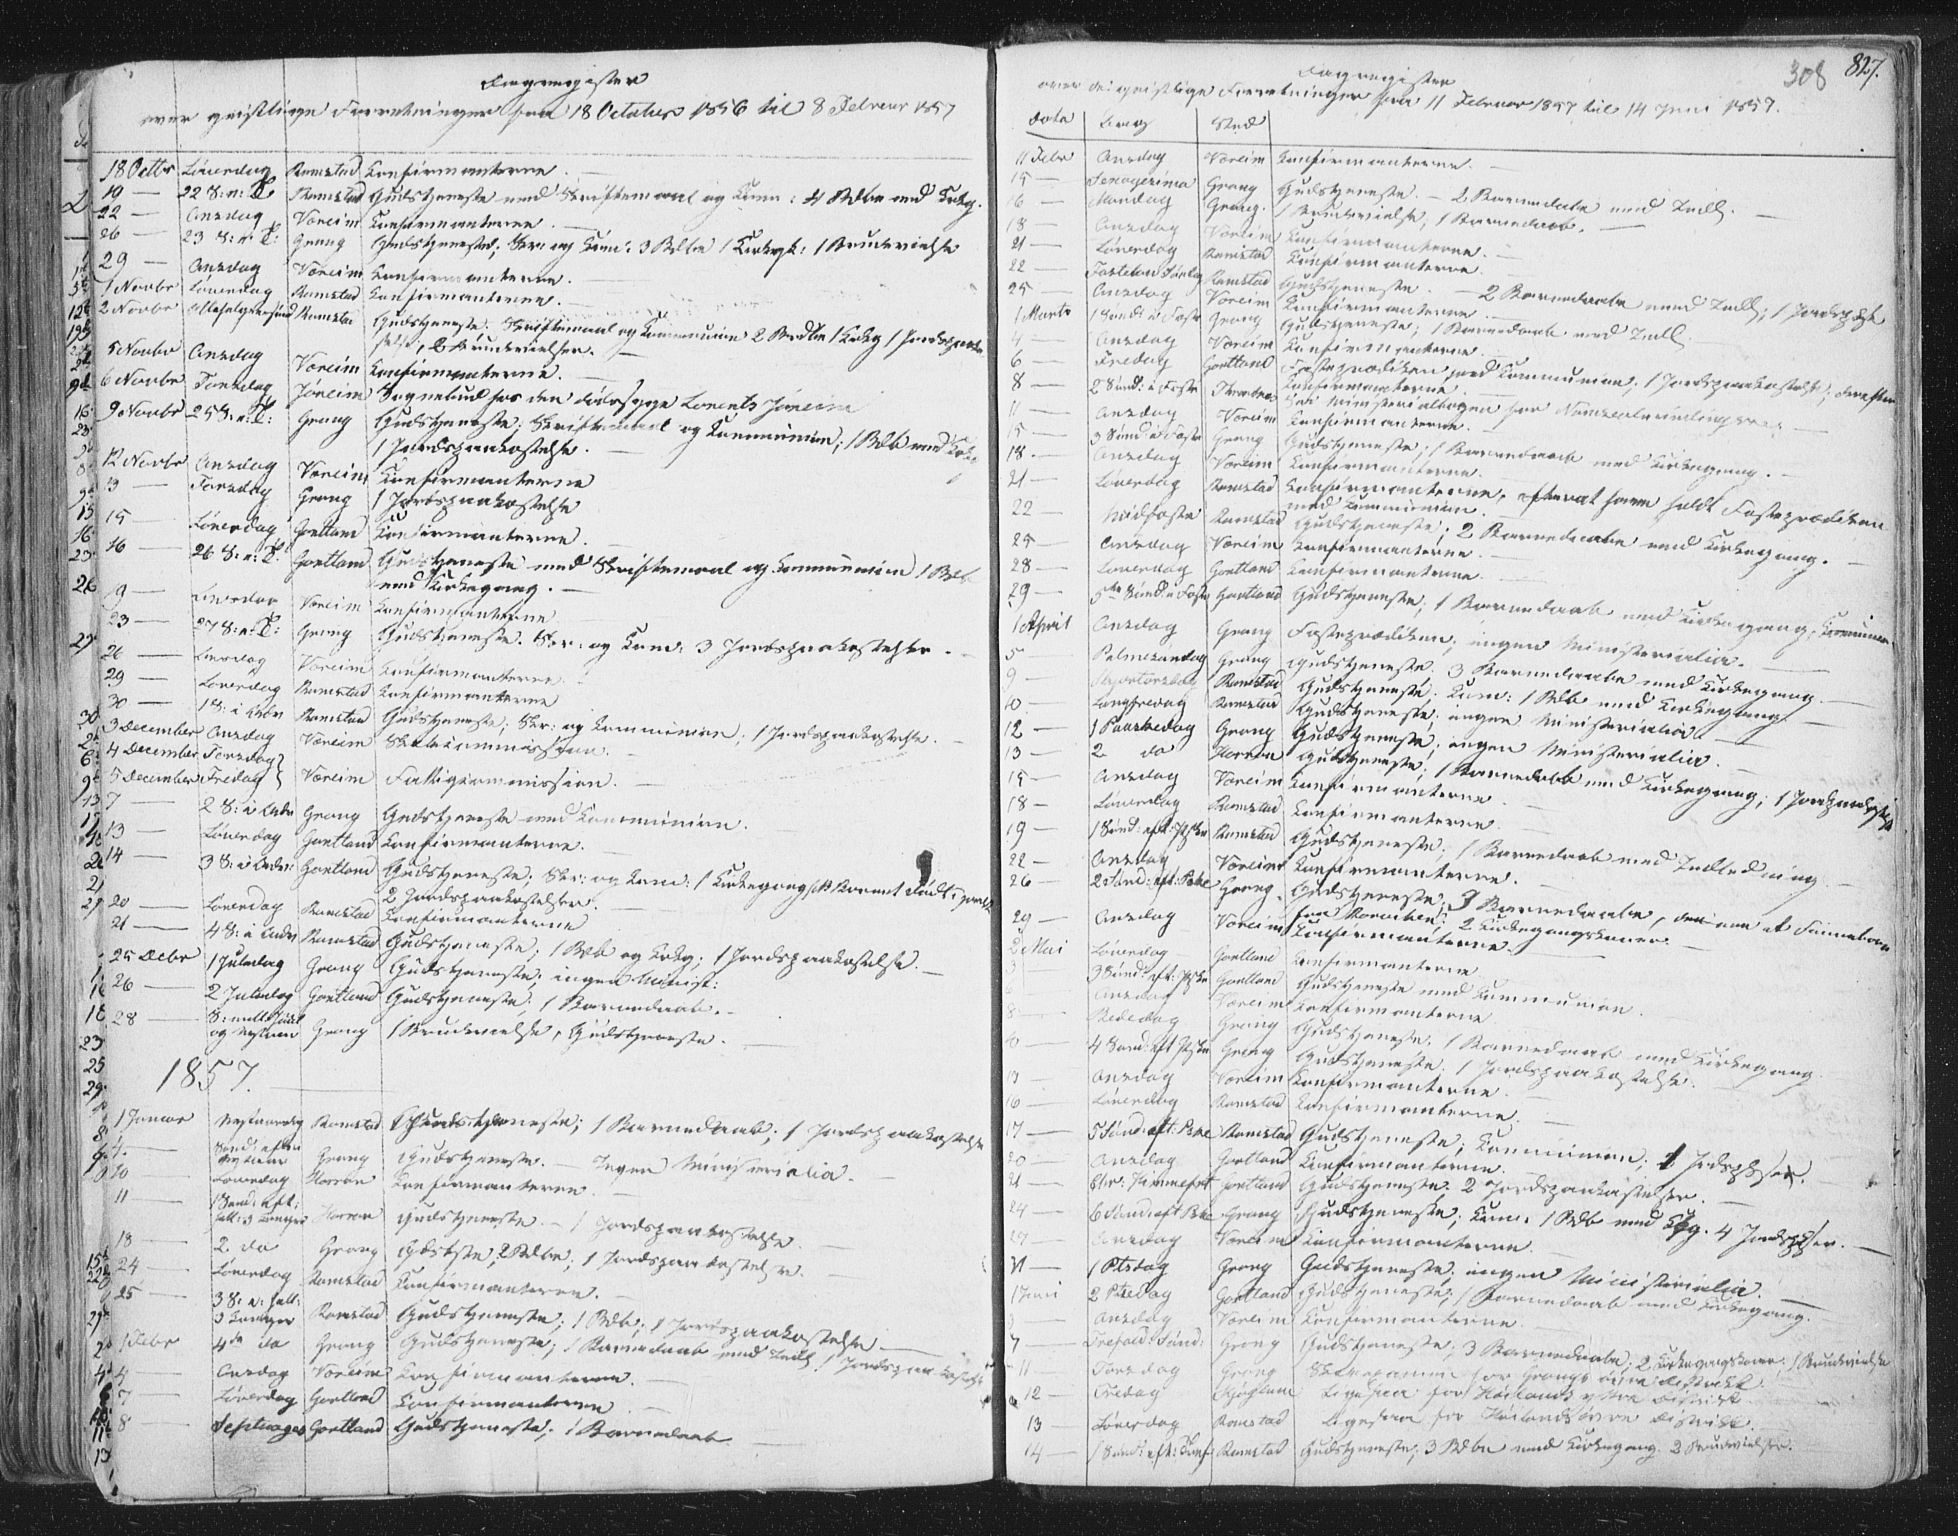 Dagregister
over geistlige Forretninger fra 18 October 1856 til 8 Februar 1857
18 Octbr Løverdag Ramstad Confirmanterne.
19 — 22 S: n: T: Ramstad Gudstjeneste med Skriftemaal og Kom: 4 Bdbe med Kirkg.
22 — Onsdag Voreim Confirmanterne.
26 — 23 S: n: T: Grong Gudstjeneste; Skr: og Kom: 3 Bdbe 1 Kirkegk: 1 Brudevielse
29 — Onsdag Voreim Confirmanterne.
1 Novbr Løverdag Ramstad Confirmanterne.
2 Novbr Allehelgensund Ramstad Gudstjeneste. Skriftemaal og Kommunion 2 Bdbe 1 Kirkg 1 Jordspaaka
stelse, 2 Brudevielser.
5 Novbr Onsdag Voreim Confirmanterne.
6 Novbr Torsdag Jøreim Sognebud hos den dødssyge Lorents Joreim
9 Novbr 25 S: n: T: Grong Gudstjeneste; Skriftemaal og Kommunion; 1 Bdb med Kirkg
1 Jordspaakastelse.
12 Novbr Onsdag Voreim Confirmanterne
13 — Torsdag Grong 1 Jordspaakastelse
15 — Løverdag Gortland Confirmanterne.
16 — 26 S: n: T: Gortland Gudstjeneste med Skriftemaal og Kommunion 1 Bdb
med Kirkegang.
19 — Onsdag Voreim Confirmanterne
23 — 27 S: n: T: Grong Gudstjeneste. Skr: og Kom: 3 Jordspaakastelser.
26 — Onsdag Voreim Confirmanterne.
29 — Løverdag Ramstad Confirmanterne
30 — 1 S: i Advt Ramstad Gudstjeneste; Skr: og Kommunion; 1 Jordspaakastelse.
3 December Onsdag Voreim Skolecommission.
4 December Torsdag }
5 December Fredag } Voreim Fattigcommission.
7 — 2 S: i Advt Grong Gudstjeneste med Communion.
13 — Løverdag Gortland Confirmanterne.
14 — 3 S: i Advt: Gortland Gudstjeneste; Skr: og Kom: 1 Kirkegang
2 Jordspaakastelser.
20 — Løverdag Ramstad Confirmanterne
21 — 4 S: i Advt Ramstad Gudstjeneste; 1 Bdb og Kirkg; 1 Jordspaakastelse.
25 Debr 1 Juledag Grong Gudstjeneste; ingen Minist:
26 — 2 Juledag Gortland Gudstjeneste; 1 Barnedaab.
28 — S: mell: Juul
og Nytaar Grong 1 Brudevielse, Gudstjeneste.
1857.
1 Januar Nytaarsdag Ramstad Gudstjeneste; 1 Barnedaab; 1 Jordspaakastelse
4. — Sønd: efter
Nytaar Grong Gudstjeneste. — Ingen Ministerialia.
10 — Løverdag Harran Confirmanterne.
11 — 1 Sønd: eft:
hell: 3 Konger Harran Gudstjeneste. — 1 Jordspaakastelse.
18 — 2 do Grong Gdstjste; 2 Bdbe; 1 Jordspaakastelse.
24 — Løverdag Ramstad Confirmanterne.
25 — 3 S: e: hell:
3 Konger Ramstad Gudstjeneste; 1 Bdb; 1 Jordspaakastelse
1 Febr 4de do Grong Gudstjeneste; 1 Barnedaab med Indl 1 Jordspaakastelse
4 — Onsdag Voreim Confirmanterne.
7 — Løverdag Gortland Confirmanterne
8 — Septuages Gortland Gudstjeneste; 1 Barnedaab
308 827.
Dagregister
over de geistlige Forretninger fra 11 Februar 1857 til 14 Juni 1857.
Dato Dag Sted
11 Febr Onsdag Voreim Confirmanterne.
15 — Sexagesima Grong Gudstjeneste. — 2 Barnedaabe med Indl.
16 — Mandag Grong. 1 Brudevielse, 1 Barnedaab.
18 — Onsdag Voreim Confirmanterne.
21 — Løverdag Ramstad Confirmanterne.
22 — Fastelavn Søndag Ramstad Gudstjeneste. — 2 Barnedaabe med Indl; 1 Jordspkst
25 — Onsdag Voreim Confirmanterne.
1 Marts 1 Sønd: i Faste Grong Gudstjeneste; 1 Barnedaab med Indl.
4 — Onsdag Voreim Confirmanterne.
6 — Fredag Gortland Fasteprædiken med Kommunion; 1 Jordspaakastelse; derefter
Confirmanterne
8 — 2 Sønd: i Faste
11 — Onsdag Voreim Confirmanterne.
15 — 3 Sønd i Faste Grong Gudstjeneste; 1 Barnedaab med Kirkegang.
18 — Onsdag Voreim Confirmanterne.
21 — Løverdag Ramstad Confirmanterne, efterat have holdt Fasteprædiken
med Kommunion.
22 — Midfaste Ramstad Gudstjeneste; 2 Barnedaabe med Kirkegang.
25 — Onsdag Voreim Confirmanterne.
28 — Løverdag Gortland Confirmanterne.
29 — 5te Sønd: i Faste Gortland Gudstjeneste; 1 Barnedaab med Kirkegang; Communion
1 April Onsdag Grong Fasteprædiken; ingen Ministerialia.
5 — Palmesøndag Grong Gudstjeneste; 3 Barnedaabe med Kirkegang.
9 — Skjærtorsdag Ramstad Gudstjeneste. Kom: 1 Bdb med Kirkegang.
10 — Langfredag Ramstad Gudstjeneste; ingen Ministerialia.
12 — 1 Paaskedag Grong Gudstjeneste; ingen Ministerialia.
13 — 2 do Harran Gudstjeneste; 1 Barnedaab med Kirkegang; 1 Jordspaakastelse
15 — Onsdag Voreim Confirmanterne
18 — Løverdag Ramstad Confirmanterne.
19 — 1 Sønd: eft: Paaske Ramstad Gudstjeneste; 1 Barnedaab med Indledning
22 — Onsdag Voreim Confirmanterne.
26 — 2 Sønd: eft: Pske Grong. Gudstjeneste; 3 Barnedaabe, den ene et Finnebarn
fra 2 Kirkegangskoner.
29 — Onsdag Voreim Confirmanterne.
2 Mai Løverdag Gortland Confirmanterne
3 — 3 Sønd: eft: Pske Gortland Gudstjeneste med Kommunion.
6 — Onsdag Voreim Confirmanterne
8 — Bededag Grong Gudstjeneste. 1 Barnedaab med Kirkegang.
10 — 4 Sønd: eft Pske Grong Gudstjeneste. 1 Jordspaakastelse.
13 — Onsdag Voreim Confirmanterne.
16 — Løverdag Ramstad Confirmanterne.
17 — 5 Sønd: eft: Pske Ramstad Gudstjeneste; Kommunion; 1 Jordspkser.
20 — Onsdag Gortland Confirmanterne.
21 — Chr: Himmelfrt Gortland Gudstjeneste. 2 Jordspaakastelser.
24 — 6 Sønd: eft Pske Grong Gudstjeneste; Kom. 1 Bdb med Kkg. 4 Jordspkser.
27 — Onsdag Voreim Confirmanterne.
31 — 1 Ptsdag Grong Gudstjeneste; ingen Ministerialia.
1 Juni 2 Ptsdag Gortland Gudstjeneste; 1 Barnedaab med Kirkegang.
3 — Onsdag Voreim Confirmanterne.
7 — Trefold: Sønd: Grong Gudstjeneste; 3 Barnedaabe; 2 Kirkegangskoner; 1 Brudevielse
11 — Torsdag Grong Skoleexamen for Grongs øvre Distrikt
12 — Fredag Ligesaa for Høilands ytre Distrikt
13 — Løverdag Ramstad Ligesaa for Høilands øvre Distrikt.
14 — 1 Sønd: eft: Tref: Ramstad Gudstjeneste; 3 Bdbe med Kirkegang 2 Brudevielser.